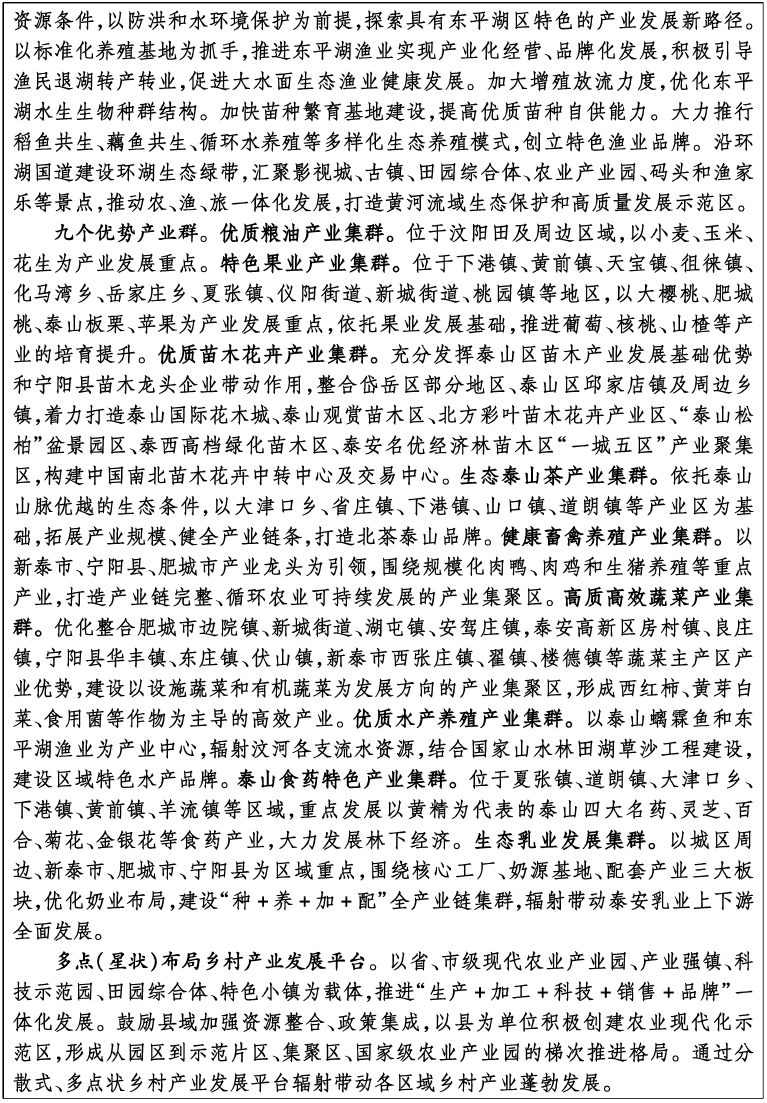 资源条件,以防洪和水环境保护为前提,探索具有东平湖区特色的产业发展新路径。
以标准化养殖基地为抓手,推进东平湖渔业实现产业化经营、品牌化发展,积极引导
渔民退湖转产转业,促进大水面生态渔业健康发展。加大增殖放流力度,优化东平
湖水生生物种群结构。加快苗种繁育基地建设,提高优质苗种自供能力。大力推行
稻鱼共生、藕鱼共生、循环水养殖等多样化生态养殖模式,创立特色渔业品牌。沿环
湖国道建设环湖生态绿带,汇聚影视城、古镇、田园综合体、农业产业园、码头和渔家
乐等景点,推动农、渔、旅一体化发展,打造黄河流域生态保护和高质量发展示范区。
九个优势产业群。优质粮油产业集群。位于汶阳田及周边区域,以小麦、玉米、
花生为产业发展重点。特色果业产业集群。位于下港镇、黄前镇、天宝镇、徂徕镇、
化马湾乡、岳家庄乡、夏张镇、仪阳街道、新城街道、桃园镇等地区,以大樱桃、肥城
桃、泰山板栗、苹果为产业发展重点,依托果业发展基础,推进葡萄、核桃、山楂等产
业的培育提升。优质苗木花卉产业集群。充分发挥泰山区苗木产业发展基础优势
和宁阳县苗木龙头企业带动作用,整合岱岳区部分地区、泰山区邱家店镇及周边乡
镇,着力打造泰山国际花木城、泰山观赏苗木区、北方彩叶苗木花卉产业区、“泰山松
柏”盆景园区、泰西高档绿化苗木区、泰安名优经济林苗木区“一城五区”产业聚集
区,构建中国南北苗木花卉中转中心及交易中心。生态泰山茶产业集群。依托泰山
山脉优越的生态条件,以大津口乡、省庄镇、下港镇、山口镇、道朗镇等产业区为基
础,拓展产业规模、健全产业链条,打造北茶泰山品牌。健康畜禽养殖产业集群。以
新泰市、宁阳县、肥城市产业龙头为引领,围绕规模化肉鸭、肉鸡和生猪养殖等重点
产业,打造产业链完整、循环农业可持续发展的产业集聚区。高质高效蔬菜产业集
群。优化整合肥城市边院镇、新城街道、湖屯镇、安驾庄镇,泰安高新区房村镇、良庄
镇,宁阳县华丰镇、东庄镇、伏山镇,新泰市西张庄镇、翟镇、楼德镇等蔬菜主产区产
业优势,建设以设施蔬菜和有机蔬菜为发展方向的产业集聚区,形成西红柿、黄芽白
菜、食用菌等作物为主导的高效产业。优质水产养殖产业集群。以泰山螭霖鱼和东
平湖渔业为产业中心,辐射汶河各支流水资源,结合国家山水林田湖草沙工程建设,
建设区域特色水产品牌。泰山食药特色产业集群。位于夏张镇、道朗镇、大津口乡、
下港镇、黄前镇、羊流镇等区域,重点发展以黄精为代表的泰山四大名药、灵芝、百
合、菊花、金银花等食药产业,大力发展林下经济。生态乳业发展集群。以城区周
边、新泰市、肥城市、宁阳县为区域重点,围绕核心工厂、奶源基地、配套产业三大板
块,优化奶业布局,建设“种+养+加+配”全产业链集群,辐射带动泰安乳业上下游
全面发展。
多点(星状)布局乡村产业发展平台。以省、市级现代农业产业园、产业强镇、科
技示范园、田园综合体、特色小镇为载体,推进“生产+加工+科技+销售+品牌”一
体化发展。鼓励县域加强资源整合、政策集成,以县为单位积极创建农业现代化示
范区,形成从园区到示范片区、集聚区、国家级农业产业园的梯次推进格局。通过分
散式、多点状乡村产业发展平台辐射带动各区域乡村产业蓬勃发展。